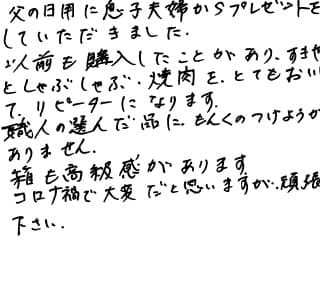 父の日用に息子夫婦からプレゼントを
していただきました.
以前も購入したことがあり、すきや
としゃぶしゃぶ・焼肉を、とてもおい
て、リピーターになります.
職人の選んだ品に、もんくのつけようが
ありません.
箱も高級感があります
コロナ禍で大変だと思いますが、頑張
下さい.